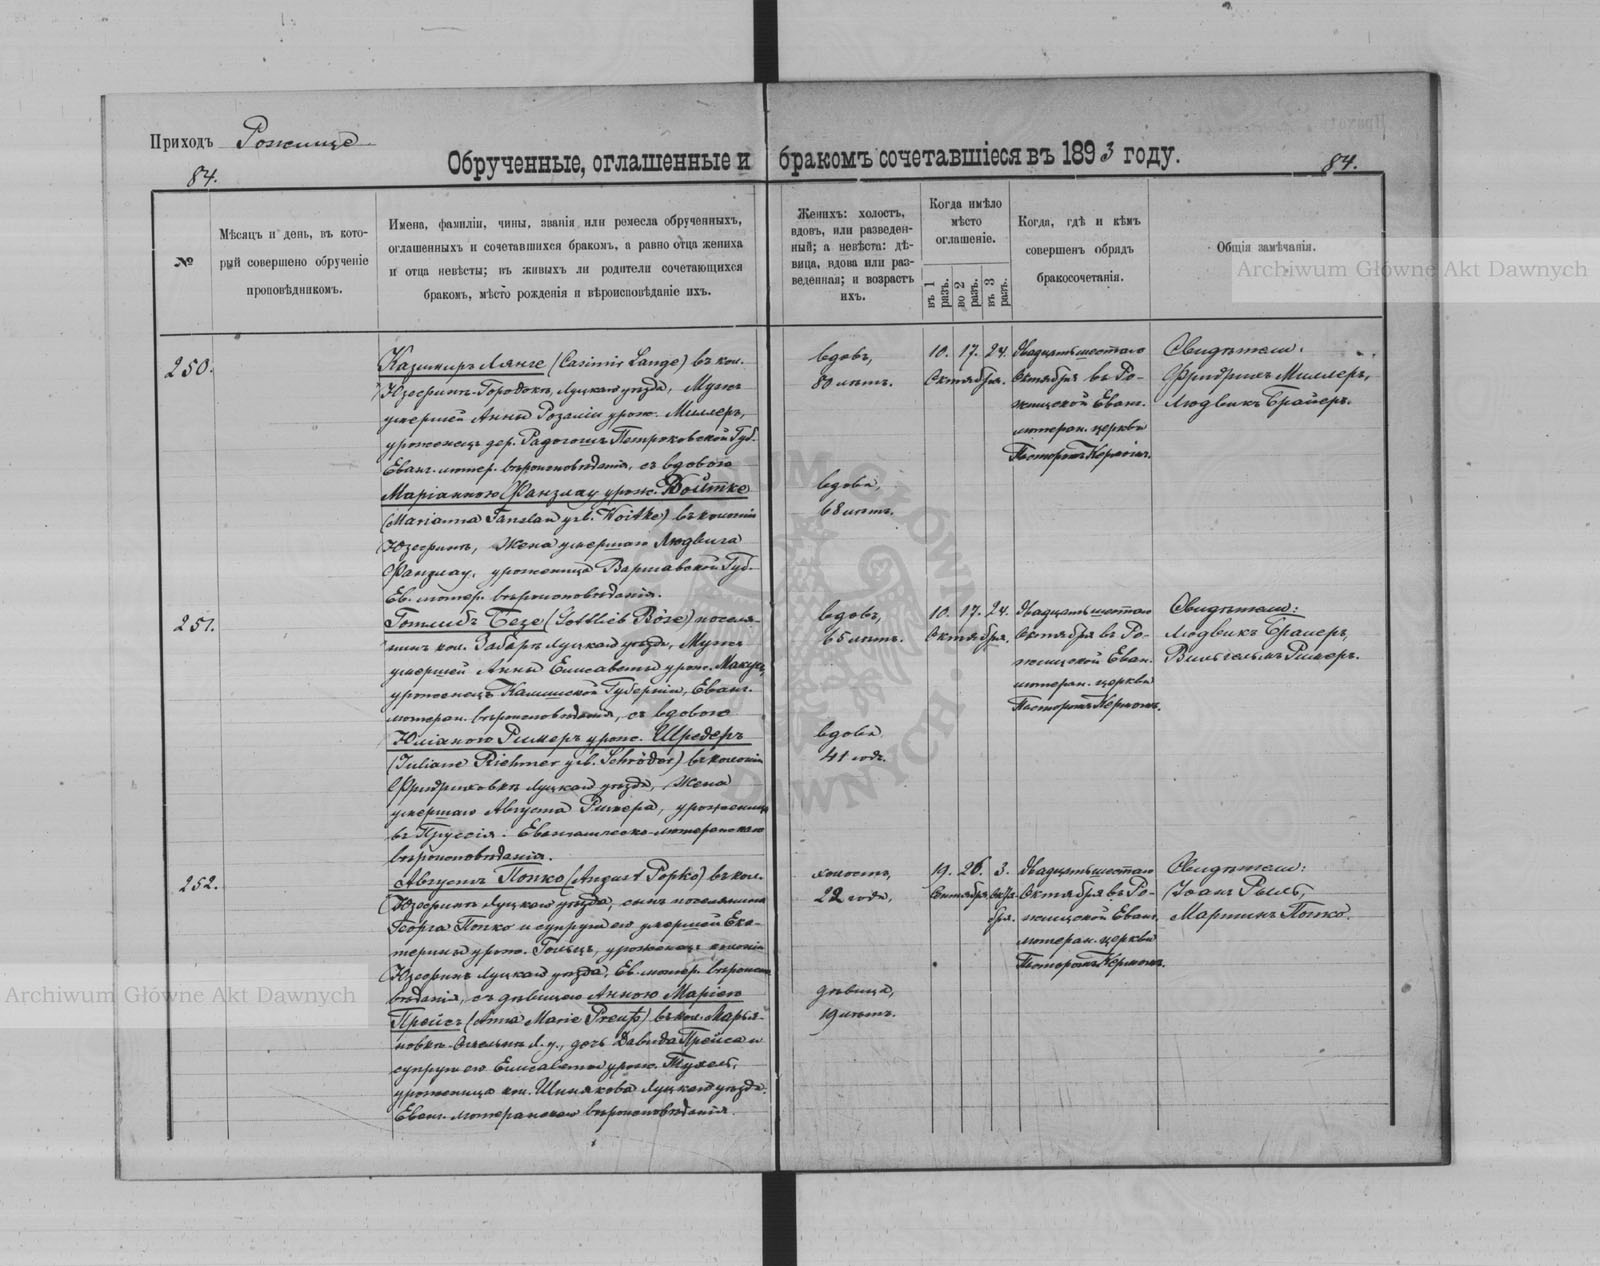 Приходъ Рожище
Обрученные, оглашенные и бракомъ сочетавшіеся въ 1893 году.
84.
84.
№
Мѣсяцъ и день, въ кото-
рый совершено обрученіе
проповѣдникомъ.
Имена, фамиліи, чины, званія или ремесла обрученныхъ,
оглашенныхъ и сочетавшихся бракомъ, а равно отца жениха
и отца невѣсты; въ живыхъ ли родители сочетающихся
бракомъ, мѣсто рожденія и вѣроисповѣданіе ихъ.
Женихъ: холостъ,
вдовъ, или разведен-
ный; а невѣста: дѣ-
вица, вдова или раз-
веденная; и возрастъ
ихъ.
Когда имѣло
мѣсто
оглашеніе.
въ 1
разъ.
во 2
разъ.
въ 3
разъ.
Когда, гдѣ и кѣмъ
совершенъ обрядъ
бракосочетанія.
Общія замѣчанія.
Archiwum Główne Akt Dawnych
250.
Казимиръ Лянге (Casimir Lange) въ кол.
Юзефинъ-Городокъ, Луцкаго уѣзда, Мужъ
умершей Анны Розаліи урож. Миллеръ,
уроженецъ дер. Радогощъ Петроковской Губ.
Еванг. лютер. вѣроисповѣданія, съ вдовою
Маріанною Фанзлау урож. Войтке
(Marianna Fanslau geb. Woitke) въ колоніи
Юзефинъ, Жена умершаго Людвига
Фанзлау, уроженица Варшавской Губ.
Ев. лютер. вѣроисповѣданія.
вдовъ,
80 лѣтъ.
вдова,
68 лѣтъ.
10. 17. 24.
Октября.
Двадцать шестаго
Октября въ Ро-
жищской Еванг.
лютеран. церкви
Пасторомъ Кермомъ.
Свидѣтели:
Фридрихъ Миллеръ,
Людвикъ Брайеръ.
251.
Готлибъ Безе (Gottlieb Böse) поселя-
нинъ кол. Забара Луцкаго уѣзда, Мужъ
умершей Анны Елисаветы урож.
уроженецъ Калишской Губерніи, Еванг.
лютеран. вѣроисповѣданія, съ вдовою
Юліаною Римеръ урож. Шредеръ
(Juliane Riehmer geb. Schröder) въ колоніи
Фридриховкѣ Луцкаго уѣзда, Жена
умершаго Августа Римера, уроженица
въ Пруссіи. Евангелическо-лютеранскаго
вѣроисповѣданія.
вдовъ,
65 лѣтъ.
вдова
41 годъ.
10. 17. 24.
Октября.
Двадцать шестаго
Октября въ Ро-
жищской Еван.
лютеран. церкви
Пасторомъ Кермомъ.
Свидѣтели:
Людвикъ Браиеръ,
Вильгельмъ Римеръ.
252.
Августъ Попко (August Popko) въ кол.
Юзефинъ Луцкаго уѣзда, сынъ поселянина
Георга Попко и супруги его умершей Ека-
терины урож. Гольцъ, уроженецъ колоніи
Юзефинъ Луцкаго уѣзда, Ев. лютер. вѣроиспо-
вѣданія, съ дѣвицею Анною Маріею
Прейсъ (Anna Marie Preuß) въ кол. Марья-
новкѣ Л. у., дочь Давида Прейса и
супруги его Елисаветы урож. Тухель,
уроженица кол. Шинякова Луцкаго уѣзда.
Еванг. лютеранскаго вѣроисповѣданія.
холостъ,
22 года,
дѣвица,
19 лѣтъ.
19. 26. 3.
Сентября Октя-
бря.
Двадцать шестаго
Октября въ Ро-
жищской Еванг.
лютеран. церкви
Пасторомъ Кермомъ.
Свидѣтели:
Іоанъ Рылъ,
Мартинъ Попко.
Archiwum Główne Akt Dawnych